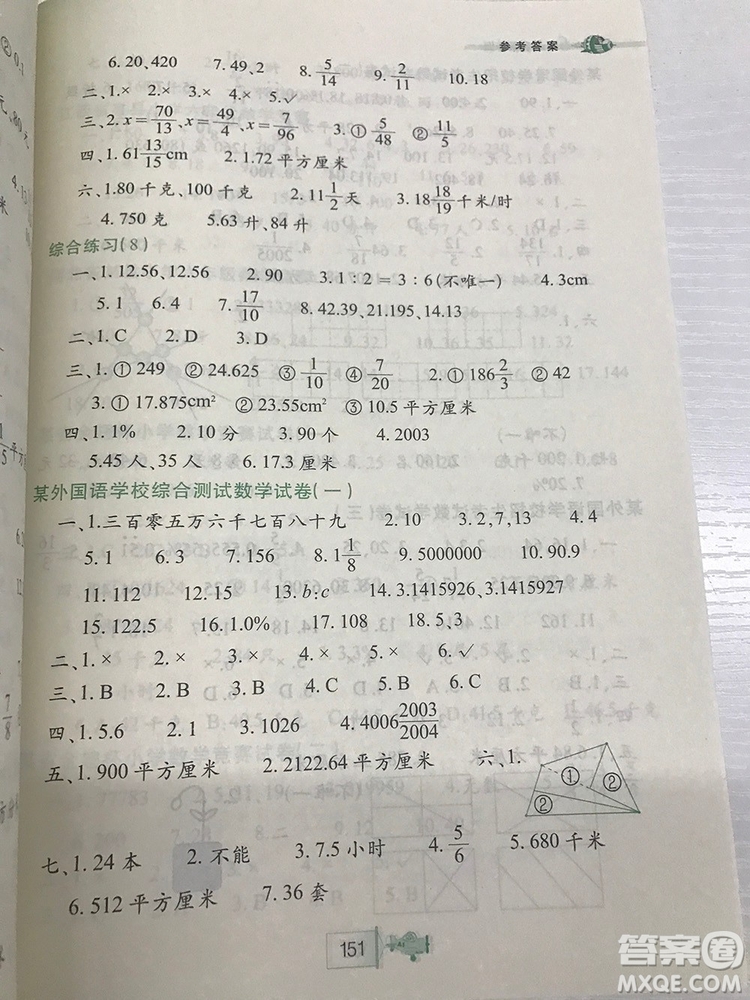 参考答案
6.20、420 7.49、2 8.5/14 9.2/11
二、1.× 2.× 3.× 4.× 5.√
三、2.x=70/13、x=49/4、x=7/96 3.①5/48 ②11/5
四、1.61 13/15 cm 2.1.72 平方厘米
六、1.80 千克、100 千克 2.11 1/2 天 3.18 18/19 千米/时
4.750 克 5.63 升、84 升
综合练习(8)
一、1.12.56、12.56 2.90 3.1：2＝3：6(不唯一) 4.3cm
5.1 6.4 7.17/10 8.42.39、21.195、14.13
二、1.C 2.D 3.D
三、1.①249 ②24.625 ③1/10 ④7/20 2.①186 2/3 ②30
3.①17.875cm² ②23.55cm² ③10.5 平方厘米
四、1.1% 2.10 分 3.90 个 4.2003
5.45 人、35 人 6.17.3 厘米
某外国语学校综合测试数学试卷(一)
一、1.三百零五万六千七百八十九 2.10 3.2、13 4.4
5.1 6.3 7.156 8.1 1/8 9.5000000 10.90.9
11.112 12.15 13.b:c 14.3.1415926、3.1415927
15.122.5 16.1.0% 17.108 18.5、3
二、1.× 2.× 3.× 4.× 5.× 6.√
三、1.B 2.B 3.B 4.A 5.B 6.C
四、1.5.6 2.4 3.1026 4.4006 2003/2004
五、1.900 平方厘米 2.2122.64 平方厘米 六、1.
① ② ②
七、1.24 本 2.不能 3.7.5 小时 4.5/6 5.680 千米
6.512 平方厘米 7.36 套
151
答案圈
MXQE.COM